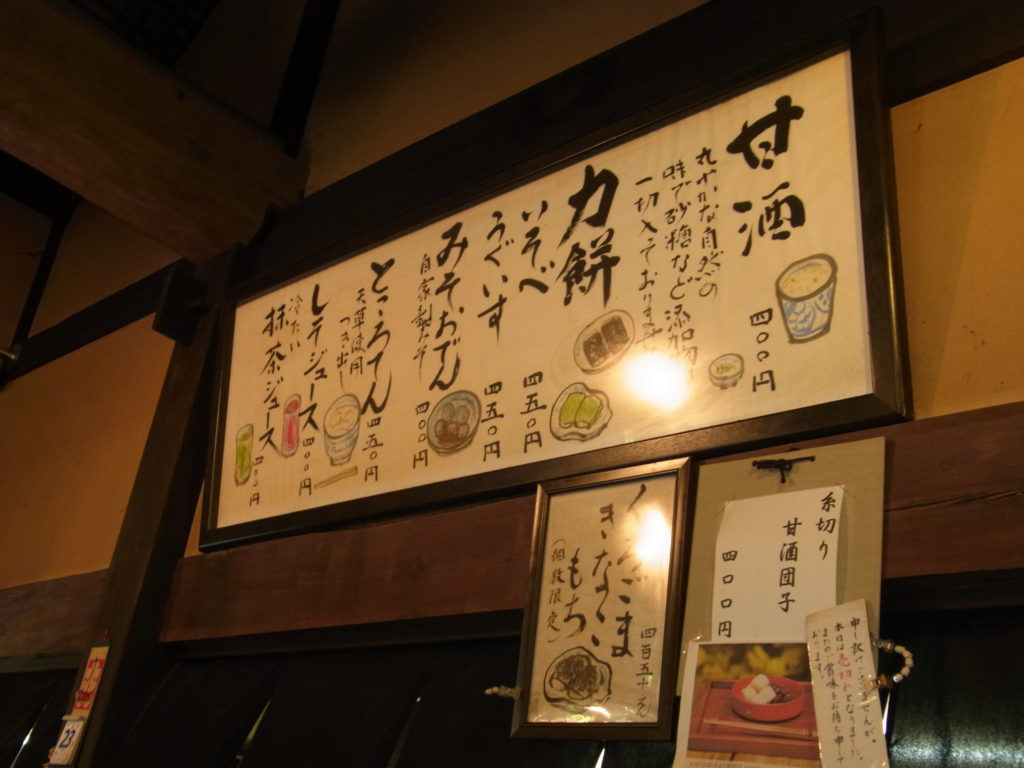 甘酒
丸やかな自然の
味で砂糖など添加物
一切入っておりません
四〇〇円
力餅
いそべ
四五〇円
うぐいす
四五〇円
みそおでん
自家製みそ
四〇〇円
ところてん
天草使用
つき出し
四五〇円
しそジュース
四〇〇円
冷たい
抹茶ジュース
円
くろごま
きなこ
もち
(個数限定)
四百五十えん
糸切り
甘酒団子
四〇〇円
申し訳ございませんが、
本日は売切れとなりました。
またのご賞味をお待ち申して
おります。
23